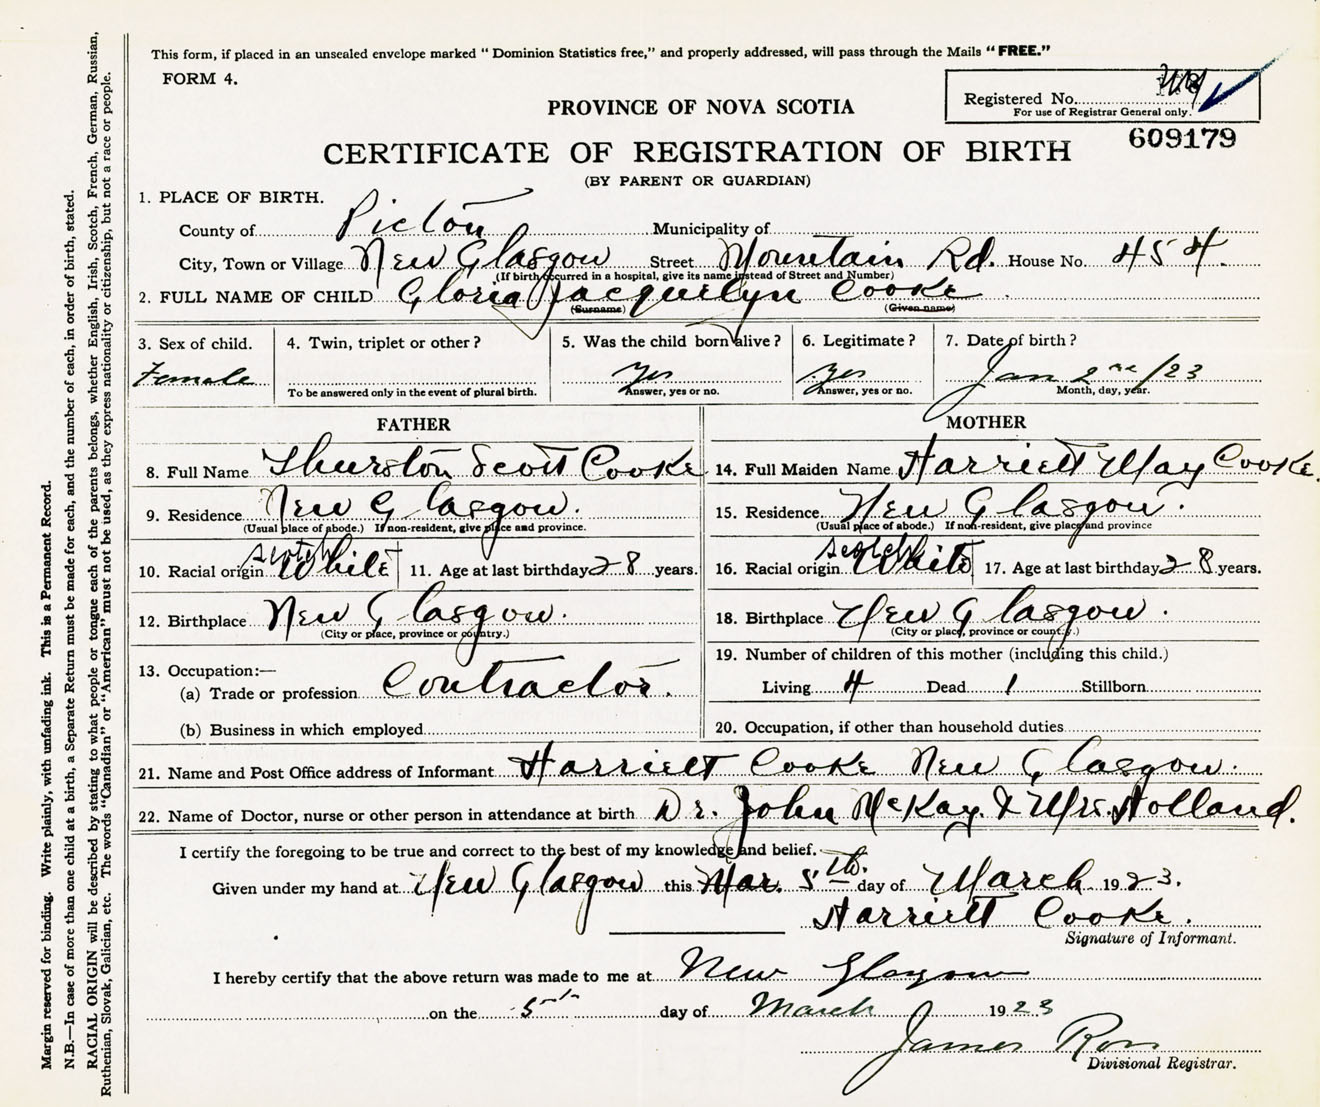 This form, if placed in an unsealed envelope marked “ Dominion Statistics free,” and properly addressed, will pass through the Mails “ FREE.”
FORM 4.
Registered No.
For use of Registrar General only.
PROVINCE OF NOVA SCOTIA
609179
CERTIFICATE OF REGISTRATION OF BIRTH
(BY PARENT OR GUARDIAN)
1. PLACE OF BIRTH.
County of Pictou Municipality of
City, Town or Village New Glasgow Street Mountain Rd. House No. 454.
(If birth occurred in a hospital, give its name instead of Street and Number)
2. FULL NAME OF CHILD Gloria Jacquelyn Cooke
(Surname) (Given name)
3. Sex of child. 4. Twin, triplet or other? 5. Was the child born alive? 6. Legitimate? 7. Date of birth?
Female Yes Yes Jan 2nd/23
To be answered only in the event of plural birth. Answer, yes or no. Answer, yes or no. Month, day, year.
FATHER MOTHER
8. Full Name Thurston Scott Cooke 14. Full Maiden Name Harriett May Cooke.
9. Residence New Glasgow. 15. Residence New Glasgow.
(Usual place of abode.) If non-resident, give place and province. (Usual place of abode.) If non-resident, give place and province
Scotch Scotch
10. Racial origin White 11. Age at last birthday 28 years. 16. Racial origin White 17. Age at last birthday 28 years.
12. Birthplace New Glasgow. 18. Birthplace New Glasgow.
(City or place, province or country.) (City or place, province or country.)
13. Occupation:— 19. Number of children of this mother (including this child.)
(a) Trade or profession Contractor. Living 4 Dead 1 Stillborn
(b) Business in which employed 20. Occupation, if other than household duties
21. Name and Post Office address of Informant Harriett Cooke New Glasgow.
22. Name of Doctor, nurse or other person in attendance at birth Dr. John McKay. & Mrs. Holland.
I certify the foregoing to be true and correct to the best of my knowledge and belief.
Given under my hand at New Glasgow this Mar. 5th. day of March 1923.
Harriett Cooke.
Signature of Informant.
I hereby certify that the above return was made to me at New Glasgow
on the 5th day of March 1923
James Ross
Divisional Registrar.
Margin reserved for binding. Write plainly, with unfading ink. This is a Permanent Record.
N.B.—In case of more than one child at a birth, a Separate Return must be made for each, and the number of each, in order of birth, stated.
RACIAL ORIGIN will be described by stating to what people or tongue each of the parents belongs, whether English, Irish, Scotch, French, German, Russian,
Ruthenian, Slovak, Galician, etc. The words “Canadian” or “American” must not be used, as they express nationality or citizenship, but not a race or people.